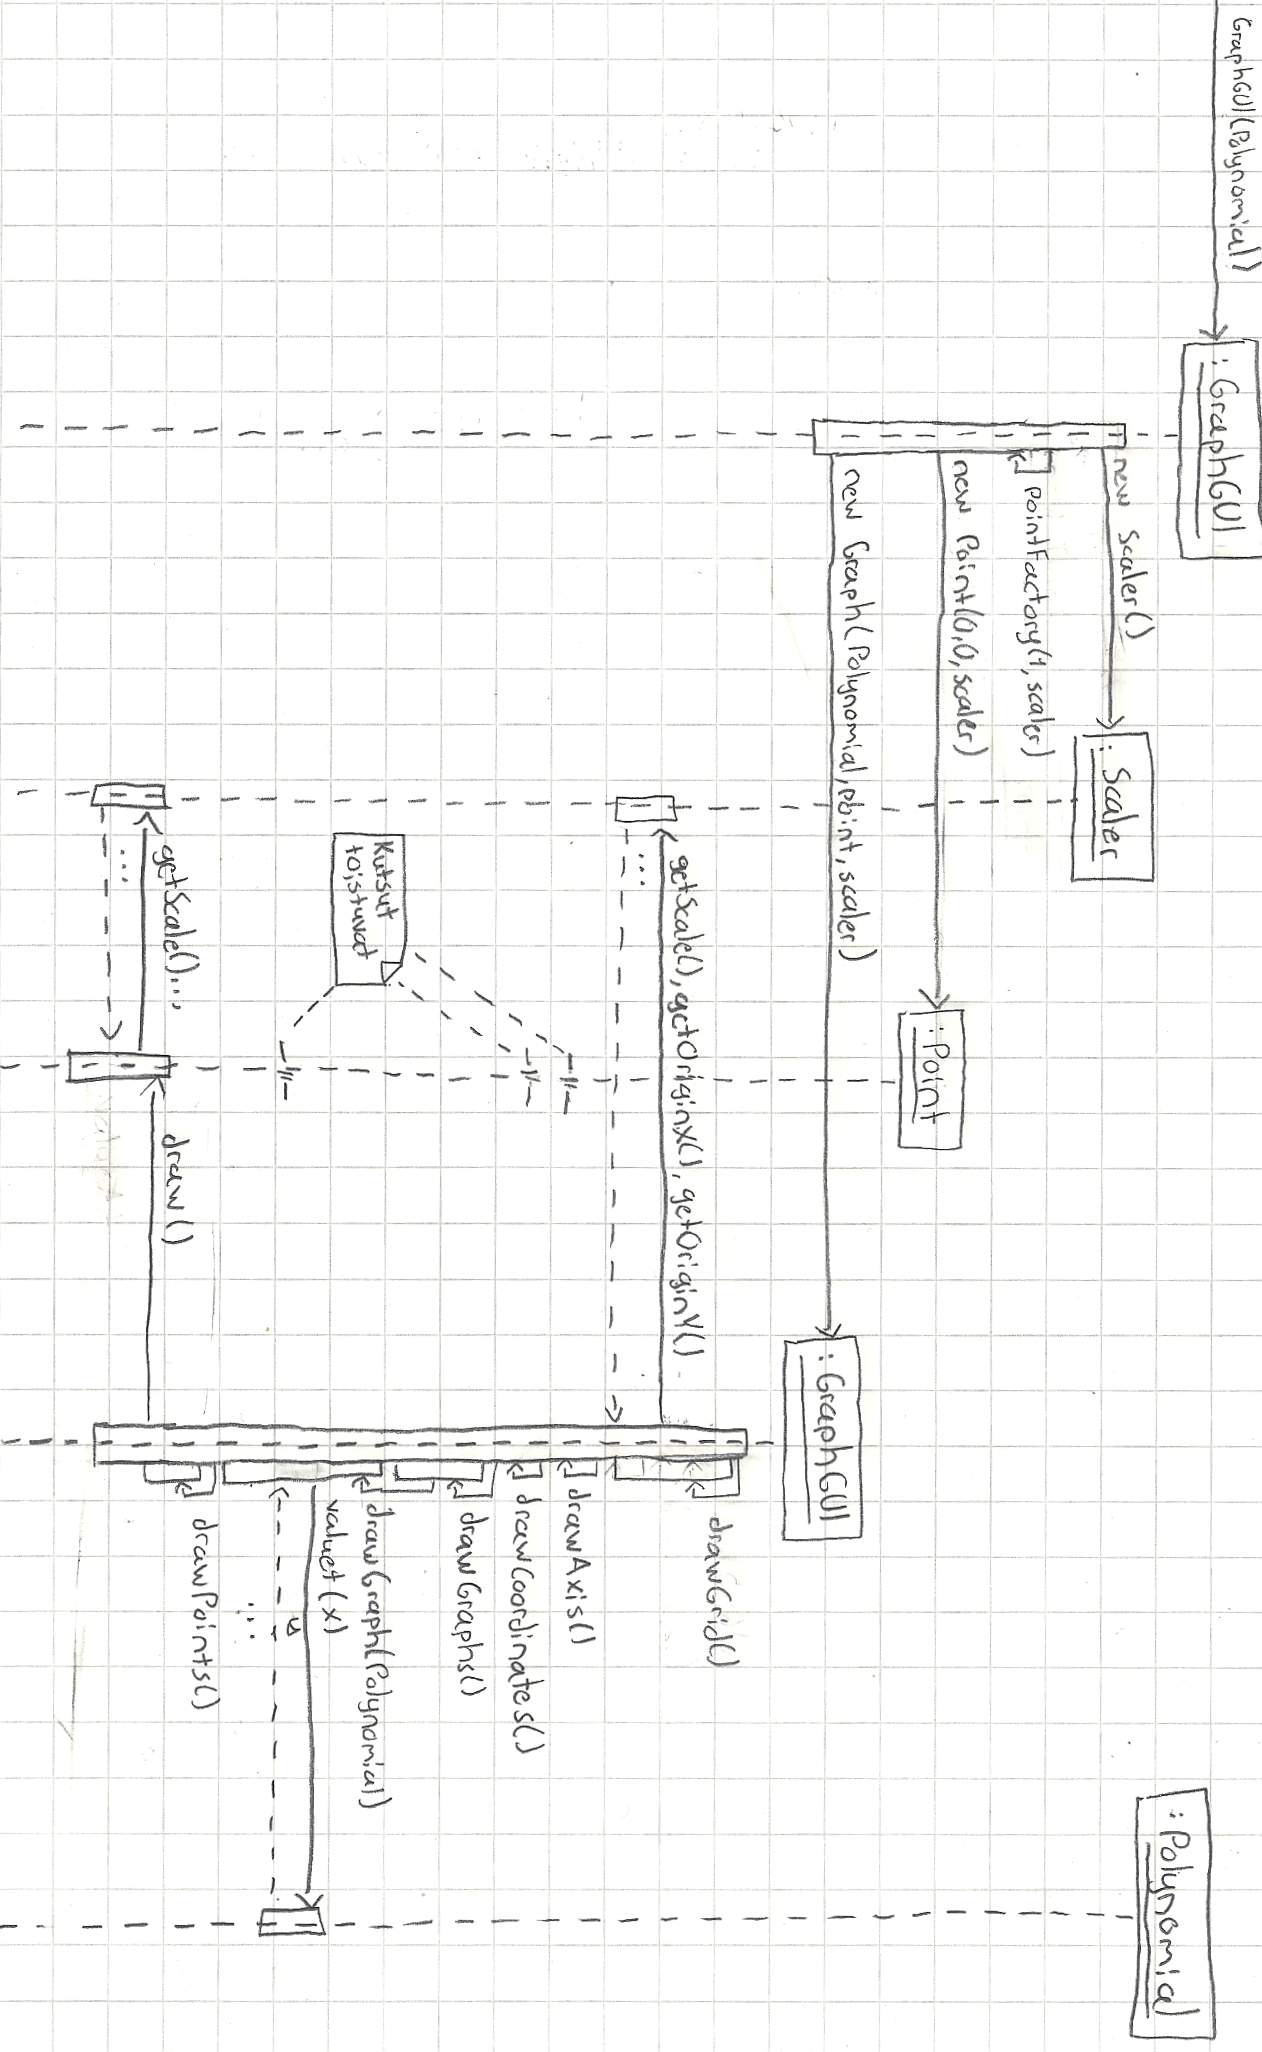 GraphGUI(Polynomial)
: GraphGUI
:Polynomial
new Scaler()
: Scaler
pointFactory(1, scaler)
new Point(0,0,scaler)
:Point
new Graph(Polynomial, point, scaler)
: GraphGUI
drawGrid()
getScale(), getOriginX(), getOriginY()
...
drawAxis()
drawCoordinates()
drawGraphs()
Kutsut
toistuvat
drawGraph(Polynomial)
valuet(x)
y
...
drawPoints()
getScale()...
draw()
...